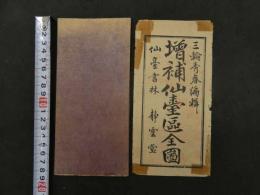 三輪青春編輯
增補仙臺區全圖
仙臺書林 靜雲堂